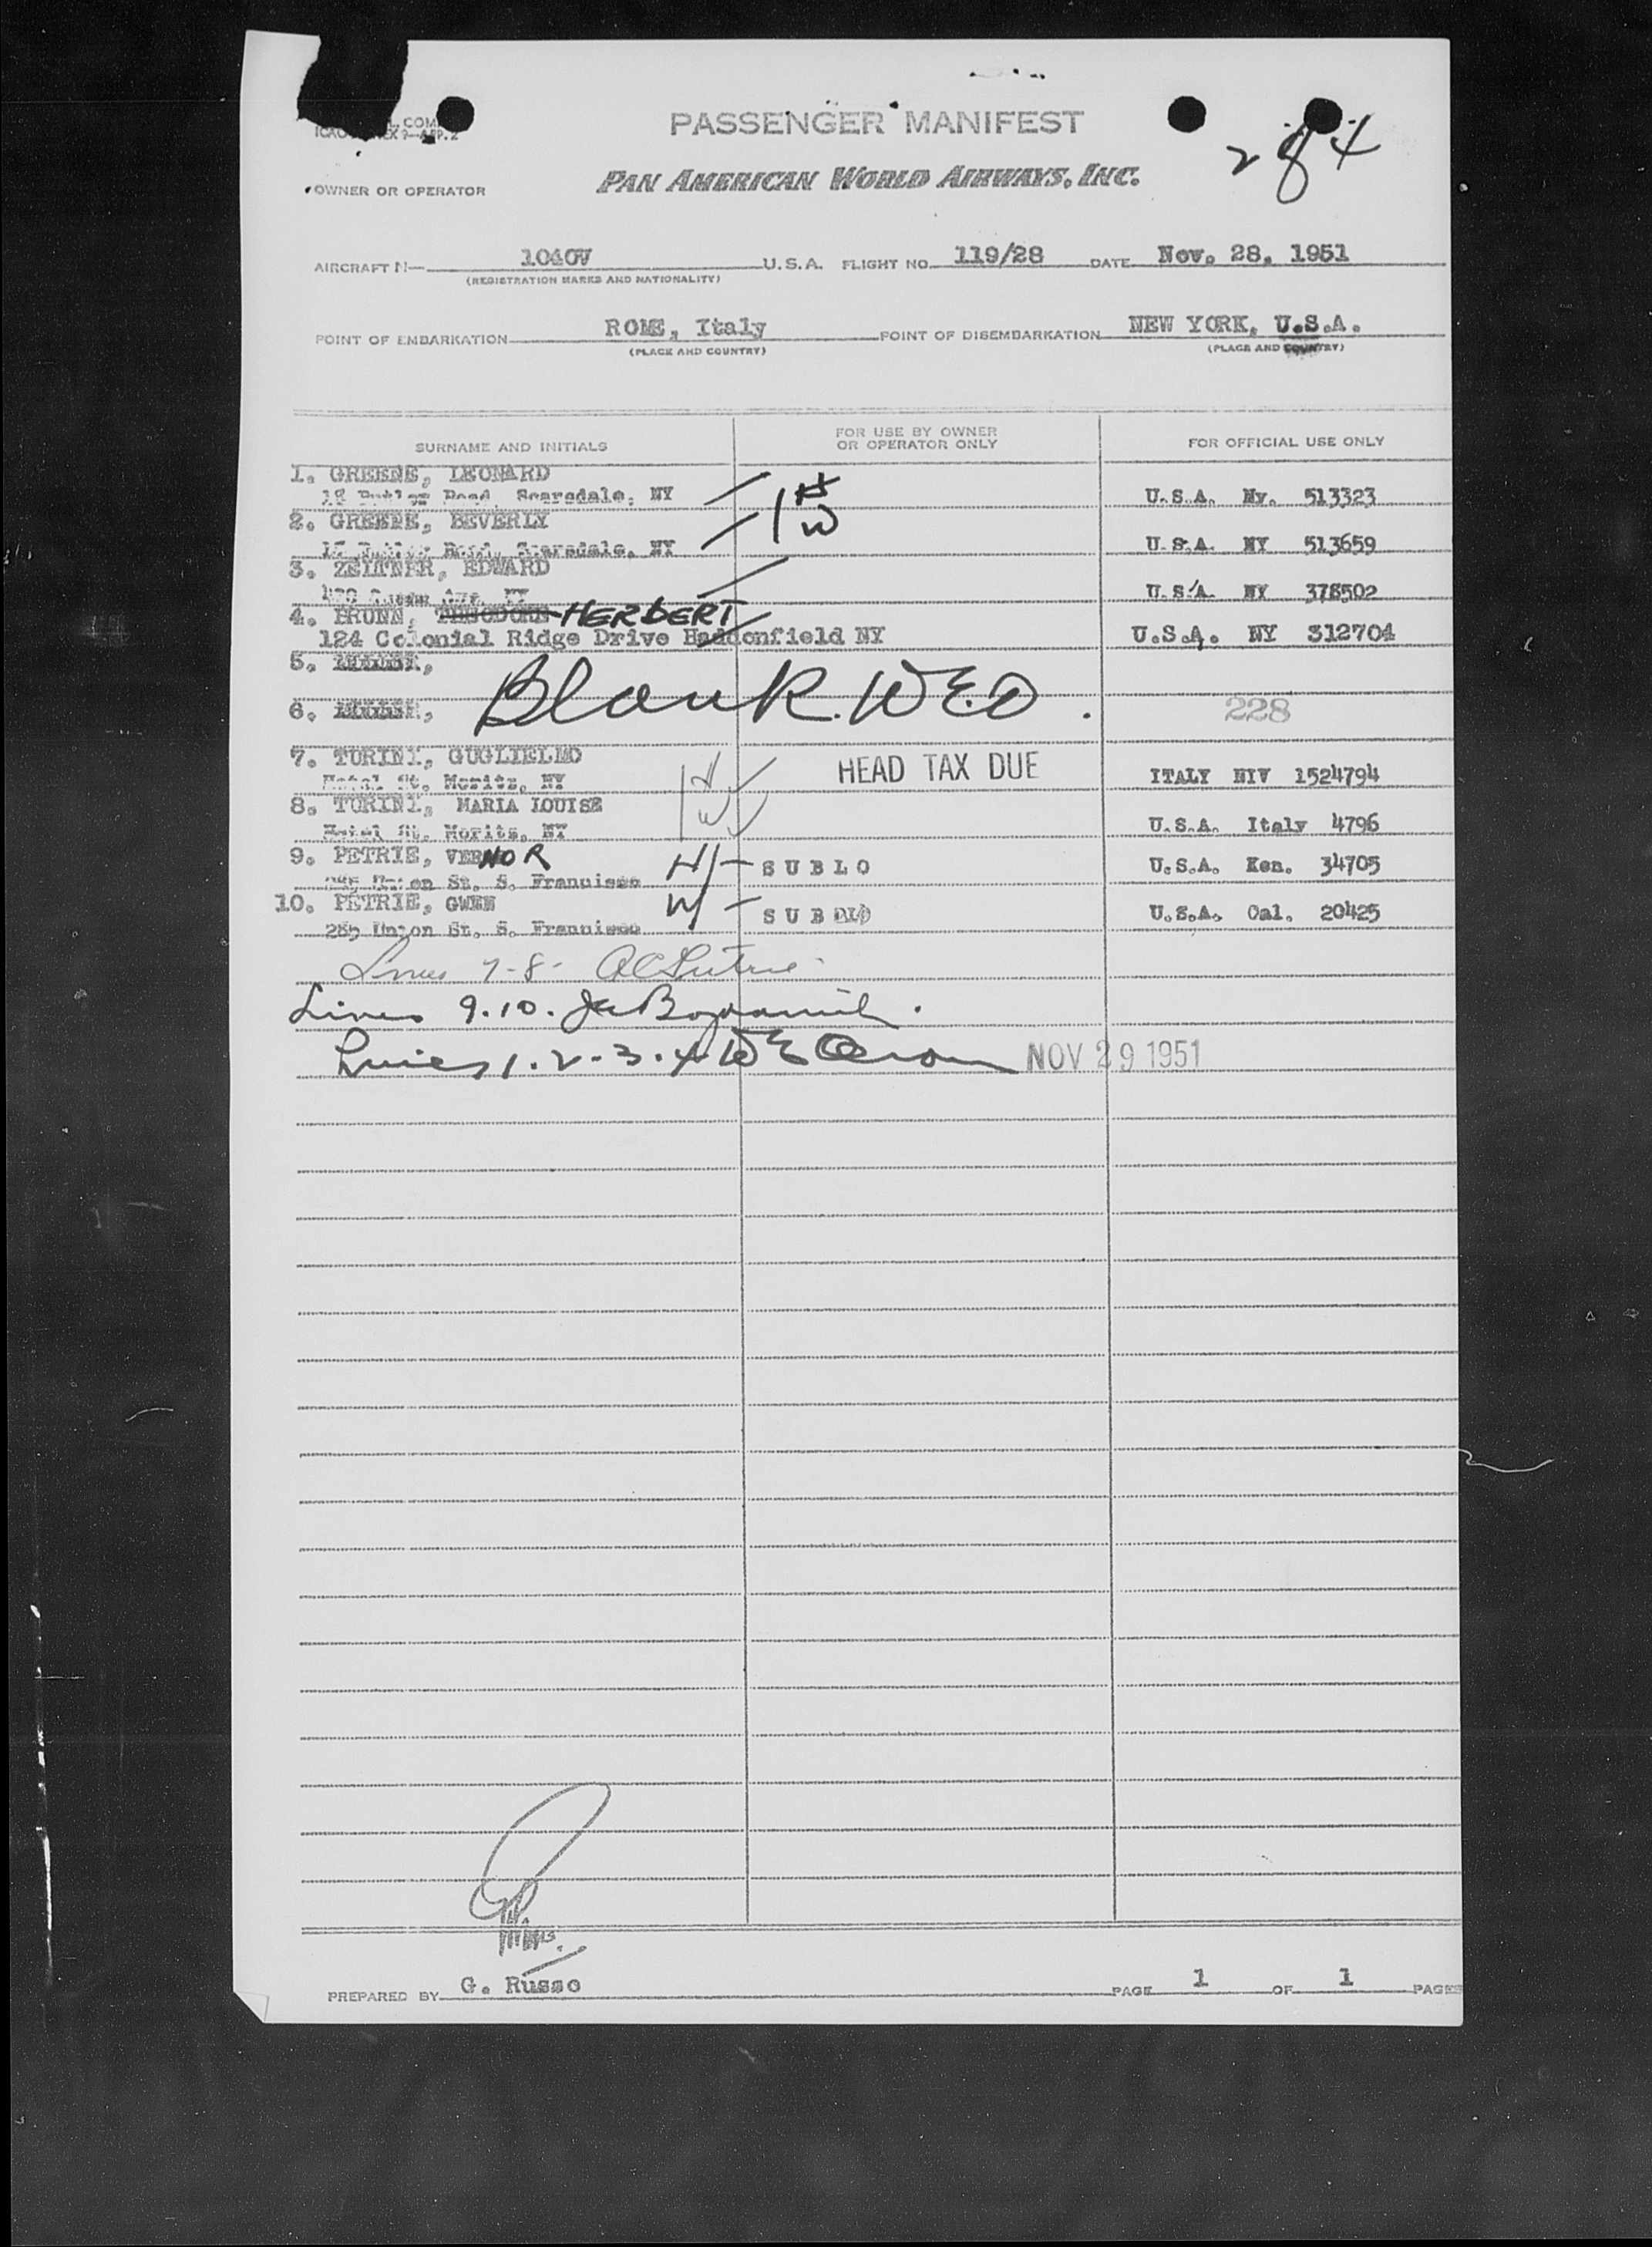 PASSENGER MANIFEST
284
OWNER OR OPERATOR
PAN AMERICAN WORLD AIRWAYS, INC.
AIRCRAFT N— 1040V U.S.A. FLIGHT NO. 119/28 DATE Nov. 28, 1951
(REGISTRATION MARKS AND NATIONALITY)
POINT OF EMBARKATION ROME, Italy POINT OF DISEMBARKATION NEW YORK, U.S.A.
(PLACE AND COUNTRY) (PLACE AND COUNTRY)
SURNAME AND INITIALS FOR USE BY OWNER OR OPERATOR ONLY FOR OFFICIAL USE ONLY
1. GREENE, LEONARD
Road, Scarsdale, NY U.S.A. Ny. 513323
2. GREENE, BEVERLY
Road, Scarsdale, NY U.S.A. NY 513659
3. ZEITNER, EDWARD
Ave. NY U.S.A. NY 378502
4. BRUNN, HERBERT
124 Colonial Ridge Drive Haddonfield NY U.S.A. NY 312704
5.
Blank. WEO.
6. 228
7. TURINI, GUGLIELMO HEAD TAX DUE
Hotel St. Moritz, NY ITALY NIV 1524794
8. TURINI, MARIA LOUISE
Hotel St. Moritz, NY U.S.A. Italy 4796
9. PETRIE, VERNOR H/- SUBLO U.S.A. Ken. 34705
Union St. S. Francisco
10. PETRIE, GWEN W/- SUB U.S.A. Cal. 20425
285 Union St. S. Francisco
Lines 7-8-
Lines 9.10.
Lines 1.2.3.4 WE NOV 29 1951
PREPARED BY G. Russo PAGE 1 OF 1 PAGES